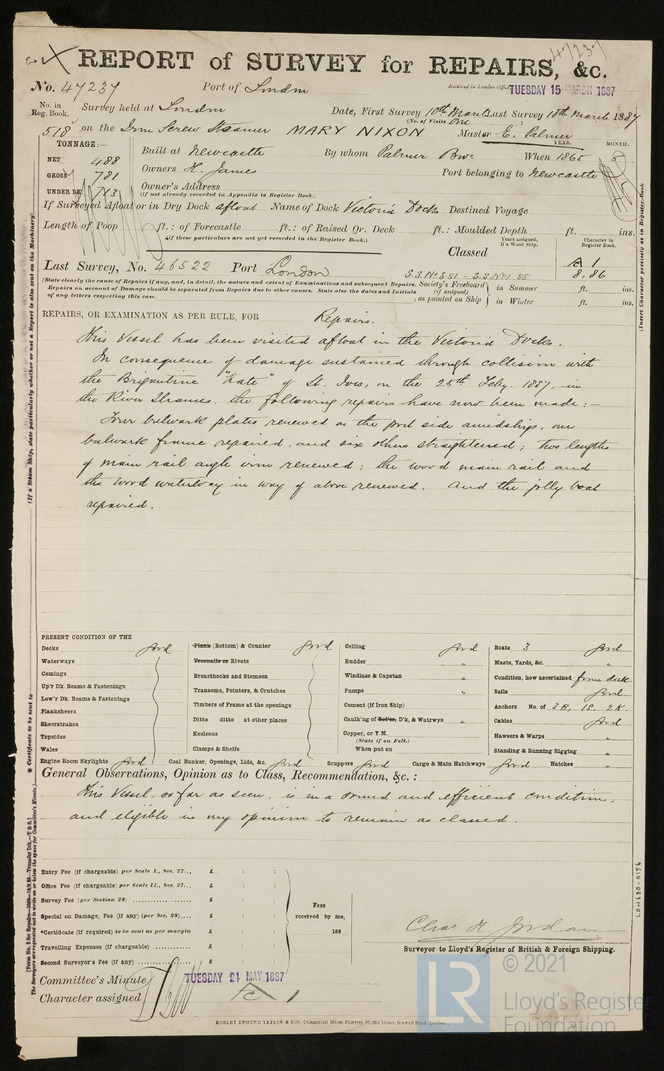 47237
REPORT of SURVEY for REPAIRS, &c.
No. 47237 Port of London Received in London Office TUESDAY 15 MARCH 1887
No. in Reg. Book. Survey held at London Date, First Survey 10th March Last Survey 10th March 1887
(No. of Visits one)
518 on the Iron Screw Steamer MARY NIXON Master E. Palmer
TONNAGE:— Built at Newcastle By whom Palmer Bros. When 1865 YEAR. MONTH.
NET 488
GROSS 781 Owners H. James Port belonging to Newcastle
UNDER DK. 743 Owner's Address
(if not already recorded in Appendix to Register Book.)
If Surveyed Afloat or in Dry Dock afloat Name of Dock Victoria Docks Destined Voyage
Length of Poop ft.: of Forecastle ft.: of Raised Qr. Deck ft.: Moulded Depth ft. ins.
(if these particulars are not yet recorded in the Register Book.)
Classed
Years assigned, if a Wood Ship.
Character in Register Book.
Last Survey, No. 46522 Port London A 1
8.86
(State clearly the cause of Repairs if any, and, in detail, the nature and extent of Examinations and subsequent Repairs.
Repairs on account of Damage should be separated from Repairs due to other causes. State also the dates and Initials
of any letters respecting this case.
Society's Freeboard (if assigned) in Summer ft. ins.
; as painted on Ship in Winter ft. ins.
REPAIRS, OR EXAMINATION AS PER RULE, FOR Repairs.
This Vessel has been visited afloat in the Victoria Docks.
In consequence of damage sustained through collision with
the Brigantine "Kate" of St. Ives, on the 25th Feby. 1887, in
the River Thames, the following repairs have now been made:—
Four bulwark plates renewed on the port side amidships, one
bulwark frame repaired, and six others straightened; two lengths
of main rail angle iron renewed; the wood main rail and
the wood waterway in way of above renewed. And the jolly boat
repaired.
PRESENT CONDITION OF THE
Decks good
Waterways
Comings
Up'r Dk. Beams & Fastenings
Low'r Dk. Beams & Fastenings
Planksheers
Sheerstrakes
Topsides
Wales
Engine Room Skylights good
Plank (Bottom) & Counter good
Treenails or Rivets
Breasthooks and Stemson
Transoms, Pointers, & Crutches
Timbers of Frame at the openings
Ditto ditto at other places
Keelsons
Clamps & Shelfs
Coal Bunker, Openings, Lids, &c. good
Ceiling good
Rudder "
Windlass & Capstan "
Pumps "
Cement (if Iron Ship) "
Caulk'ng of Bot'm, D'k, & Watrwys "
Copper, or Y.M.
(State if on Felt.)
When put on
Scuppers good
Cargo & Main Hatchways good
Boats 3 good
Masts, Yards, &c. "
Condition, how ascertained from deck
Sails good
Anchors No. of 3B, 1S, 2K.
Cables good
Hawsers & Warps "
Standing & Running Rigging "
Hatches "
General Observations, Opinion as to Class, Recommendation, &c.:
This Vessel, so far as seen, is in a sound and efficient condition,
and eligible in my opinion to remain as classed.
Entry Fee (if chargeable) per Scale I., Sec. 27... £ : :
Office Fee (if chargeable) per Scale II., Sec. 27... £ : :
Survey Fee (per Section 28) £ : :
Special on Damage, Fee (if any) (per Sec. 28) £ : :
*Certificate (if required) to be sent as per margin £
Travelling Expenses (if chargeable) £
Second Surveyor's Fee (if any) £
Fees
received by me,
188
Chas H. Jordan
Surveyor to Lloyd's Register of British & Foreign Shipping.
Committee's Minute TUESDAY 24 MAY 1887
Character assigned A 1
ROBERT EDMUND TAYLOR & SON,
LON680-0156
LR
© 2021
Lloyd's Register
Foundation